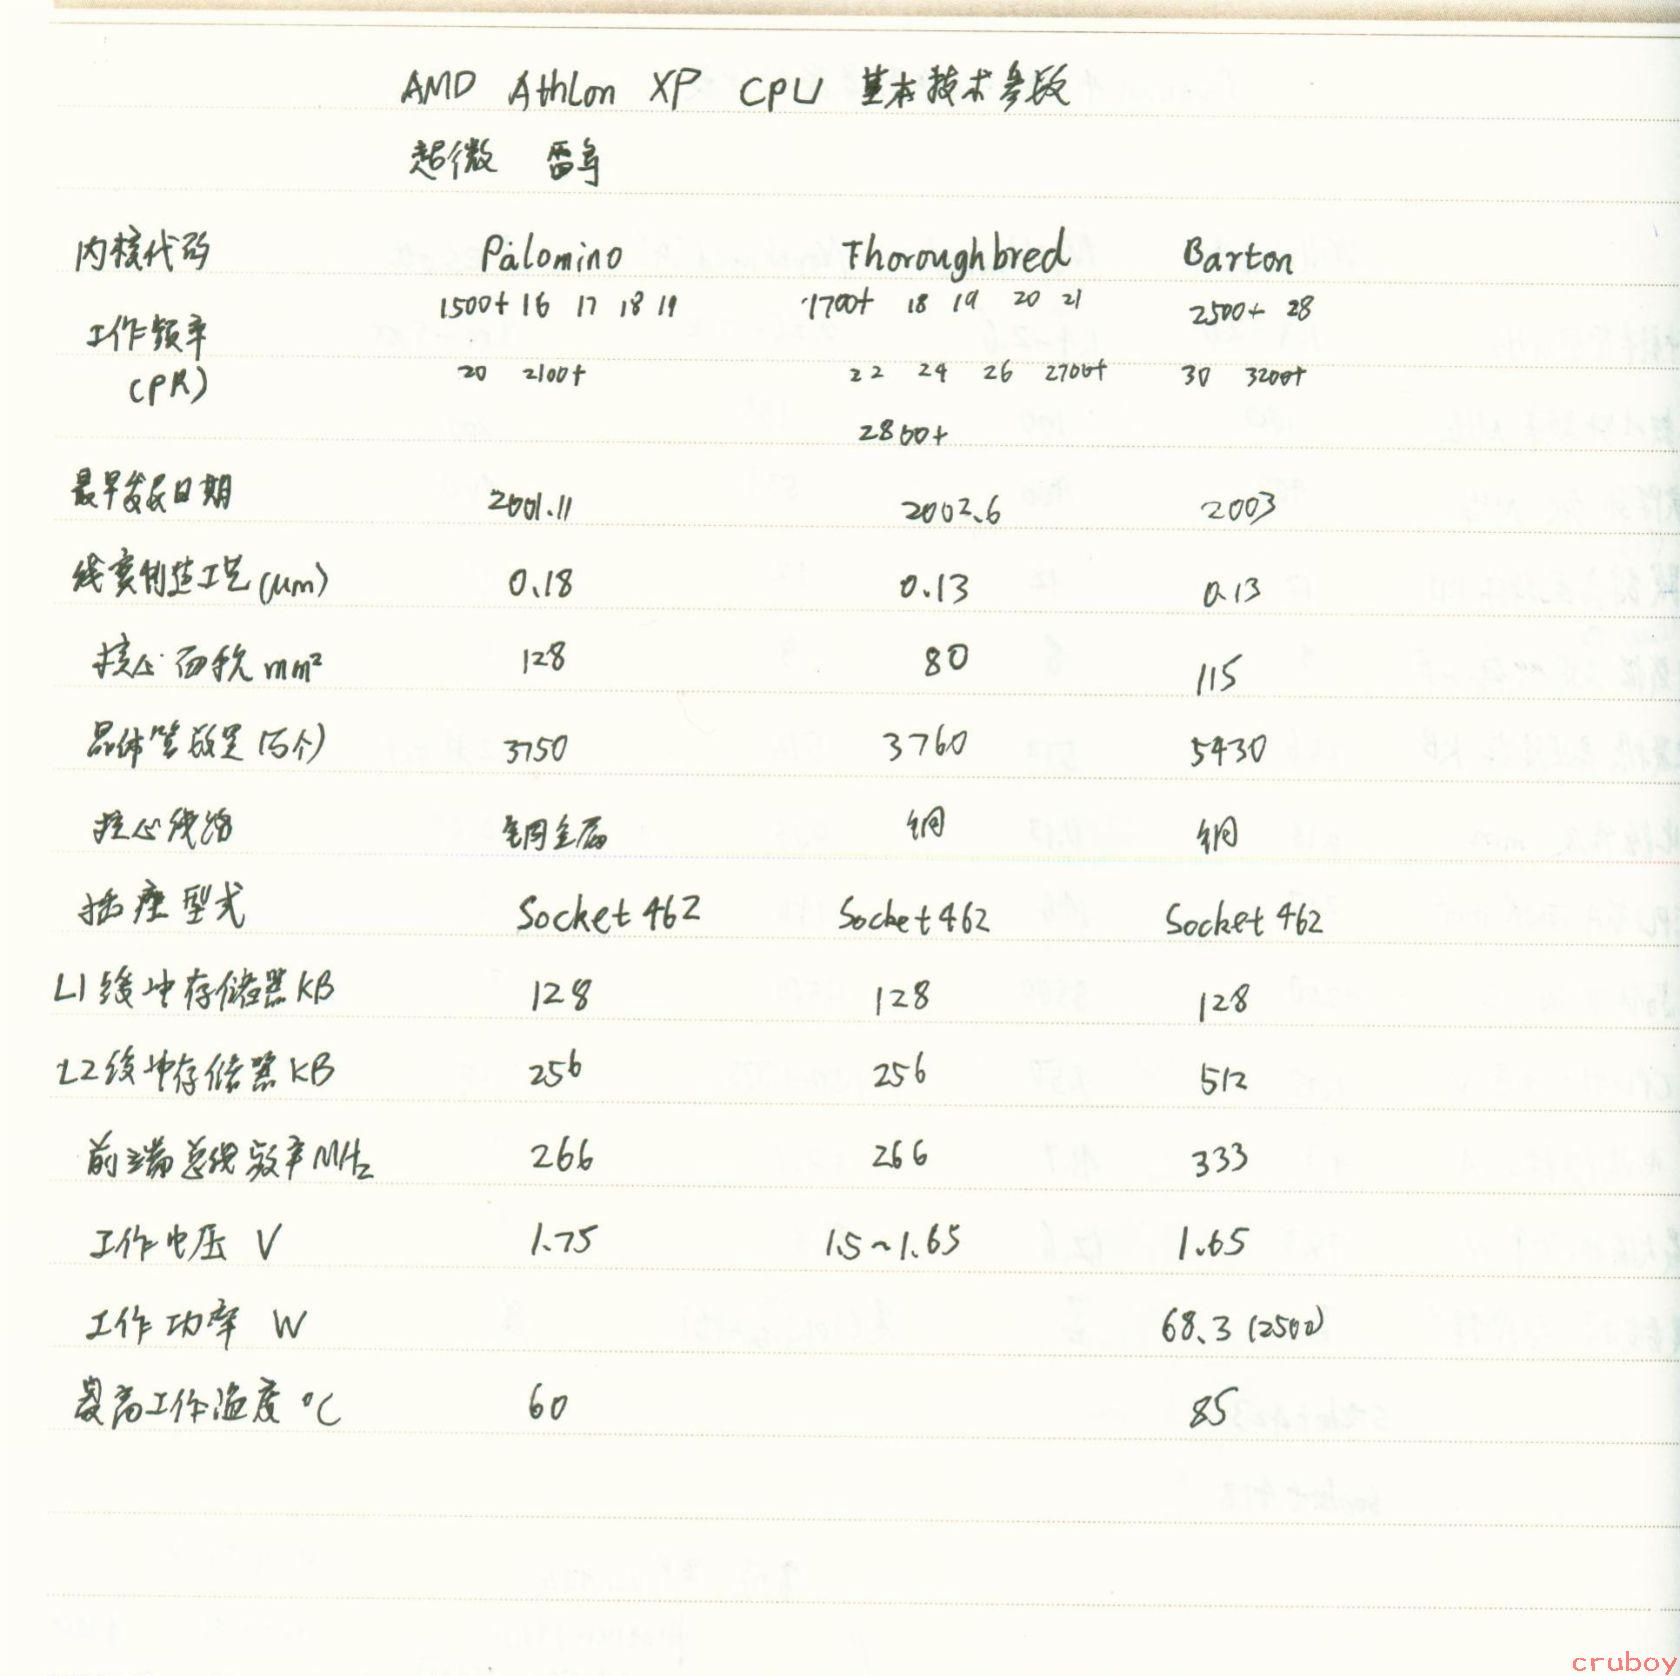 AMD Athlon XP CPU 基本技术参数
超微 雷鸟
内核代码 Palomino Thoroughbred Barton
1500+ 16 17 18 19 1700+ 18 19 20 21 2500+ 28
工作频率
20 2100+ 22 24 26 2700+ 30 3200+
(PR)
2800+
最早发表日期 2001.11 2002.6 2003
线宽制造工艺(μm) 0.18 0.13 0.13
核心面积 mm² 128 80 115
晶体管数量(万个) 3750 3760 5430
核心线路 铜金属 铜 铜
插座型式 Socket 462 Socket 462 Socket 462
L1缓冲存储器KB 128 128 128
L2缓冲存储器KB 256 256 512
前端总线频率MHz 266 266 333
工作电压 V 1.75 1.5~1.65 1.65
工作功率 W 68.3 (2500)
最高工作温度 °C 60 85
cruboy